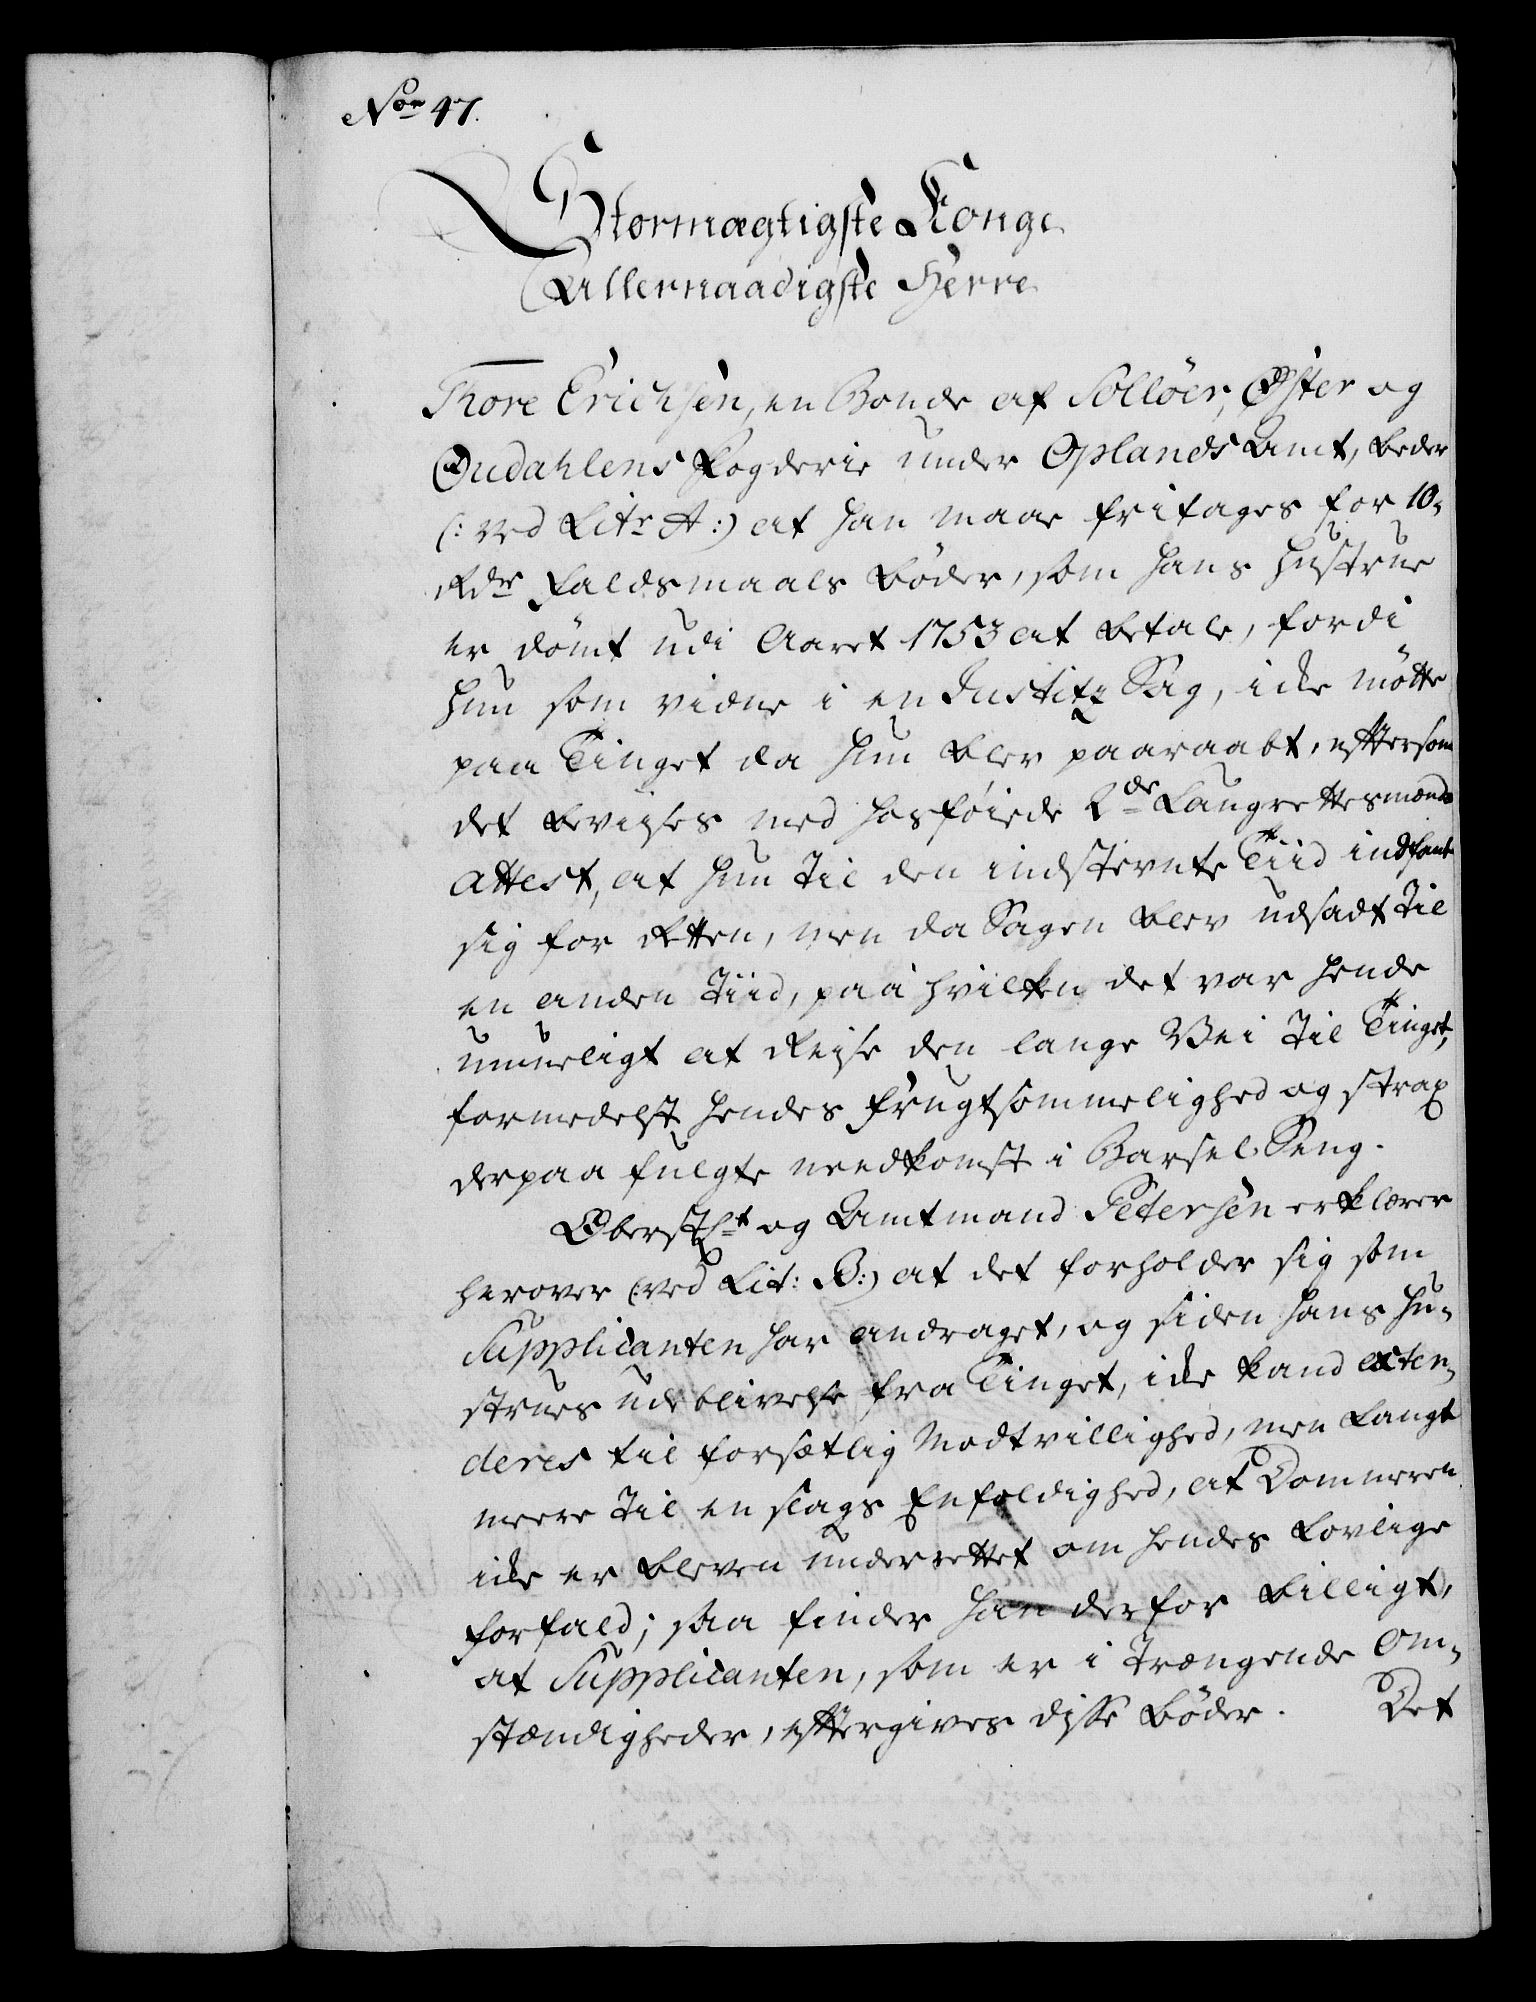 No 47.
Stormægtigste Konge
Allernaadigste Herre
Thore Erichsen, en Bonde af Solløer, Øster og
Oudahlens Fogderie under Oplands Amt, beder
(: ved Litr A :) at han maae fritages for 10
Rdr Faldsmaals bøder, som hans Hustrue
er dømt udi Aaret 1753 at betale, fordi
hun som vidne i en Justitz Sag, icke mötte
paa Tinget da hun blev paaraabt, eftersom
det bevises med hosføiede 2de Laugrettesmænds
attest, at hun til den indstevnte Tiid indfant
sig for Retten, men da Sagen blev udsadt til
en anden Tiid, paa hvilken det var hende
umueligt at Reyse den lange Vei til Tinget,
formedelst hendes frugtsommelighed og strax
derpaa fulgte needkomst i Barsel-Seng.
Oberstlt og Amtmand Petersen erklærer
herover (: ved Lit: B :) at det forholder sig som
Supplicanten har andraget, og siden hans Hu-
strues udeblivelse fra Tinget, icke kand exten-
deres til forsætlig Modtvillighed, men langt
meere til en slags Enfoldighed, at Dommeren
icke er bleven underrettet om hendes Lovlige
forfald; saa finder han derfor billigt,
at Supplicanten, som er i trængende Om-
stændigheder, eftergives disse bøder. Det